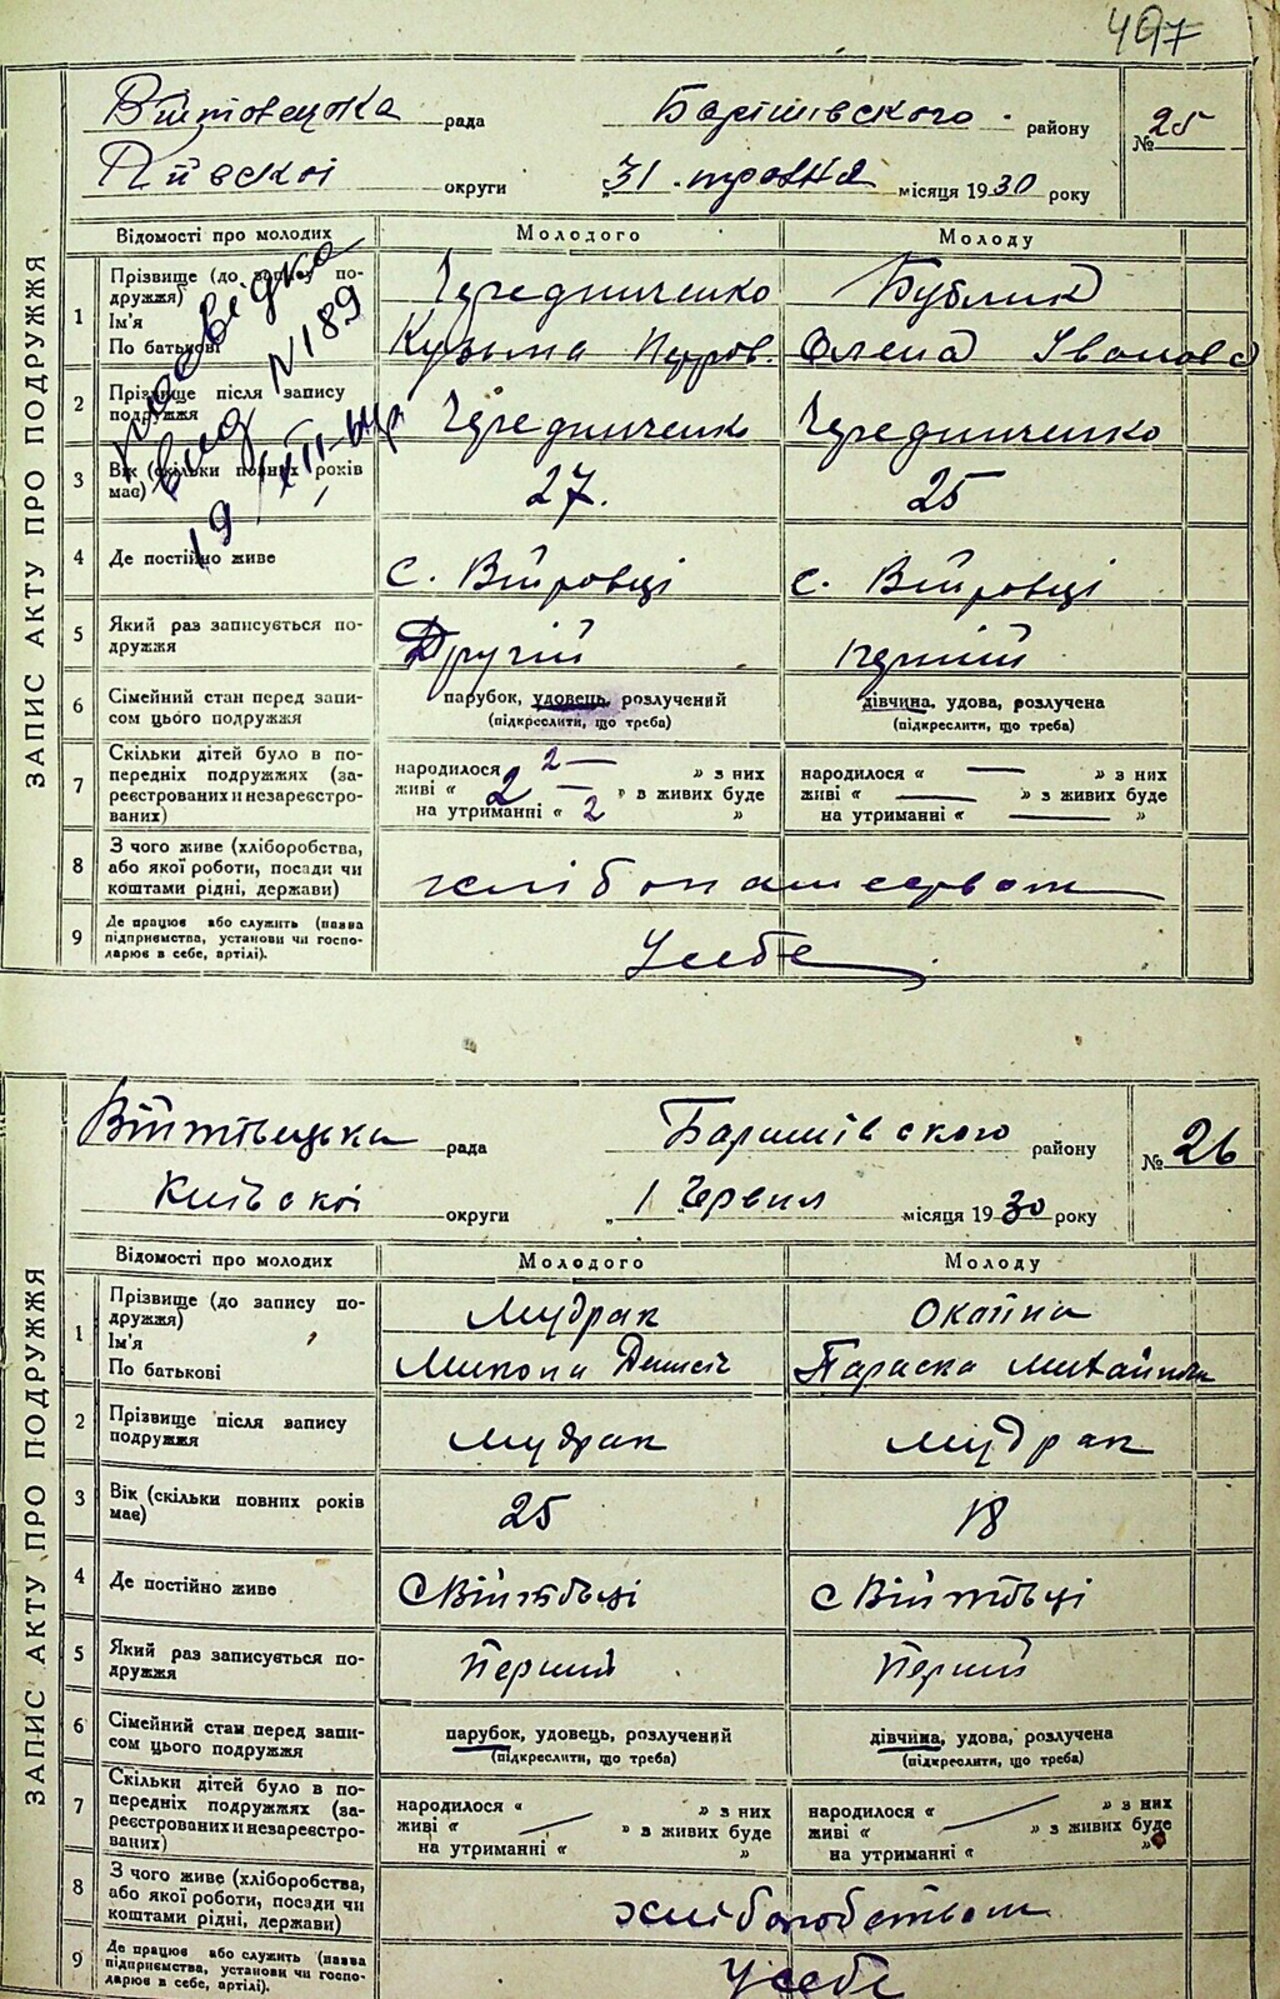 497
Війтовецька рада Баришівського району № 25
Київскоі округи „31" травня місяця 1930 року
ЗАПИС АКТУ ПРО ПОДРУЖЖЯ
Відомості про молодих Молодого Молоду
1 Прізвище (до запису подружжя) Чередниченко Бублик
Ім'я
По батькові Кузьма Петров. Олена Іванова
2 Прізвище після запису подружжя Чередниченко Чередниченко
3 Вік (скільки повних років має) 27. 25
N 189
19
4 Де постійно живе с. Війтовці с. Війтовці
5 Який раз записується подружжя Другій перший
6 Сімейний стан перед записом цього подружжя парубок, удовець, розлучений дівчина, удова, розлучена
(підкреслити, що треба) (підкреслити, що треба)
7 Скільки дітей було в попередніх подружжях (зареєстрованих и незареєстрованих)
народилося 2 — » з них народилося « — » з них
живі « 2 — » в живих буде живі « — » з живих буде
на утриманні « 2 » на утриманні « — »
8 З чого живе (хліборобства, або якої роботи, посади чи коштами рідні, держави)
9 Де працює або служить (назва підприємства, установи чи господарює в себе, артілі). У себе
Війтівецька рада Баришівского району № 26
Київскоі округи „1" Червня місяця 1930 року
ЗАПИС АКТУ ПРО ПОДРУЖЖЯ
Відомості про молодих Молодого Молоду
1 Прізвище (до запису подружжя) Мудрак
Ім'я
По батькові Микола Параска
2 Прізвище після запису подружжя Мудрак Мудрак
3 Вік (скільки повних років має) 25 18
4 Де постійно живе с Війтівці с Війтівці
5 Який раз записується подружжя Перший Перший
6 Сімейний стан перед записом цього подружжя парубок, удовець, розлучений дівчина, удова, розлучена
(підкреслити, що треба) (підкреслити, що треба)
7 Скільки дітей було в попередніх подружжях (зареєстрованих и незареєстрованих)
народилося « » з них народилося « » з них
живі « » з живих буде живі « » з живих буде
на утриманні « » на утриманні « »
8 З чого живе (хліборобства, або якої роботи, посади чи коштами рідні, держави)
9 Де працює або служить (назва підприємства, установи чи господарює в себе, артілі). У себе